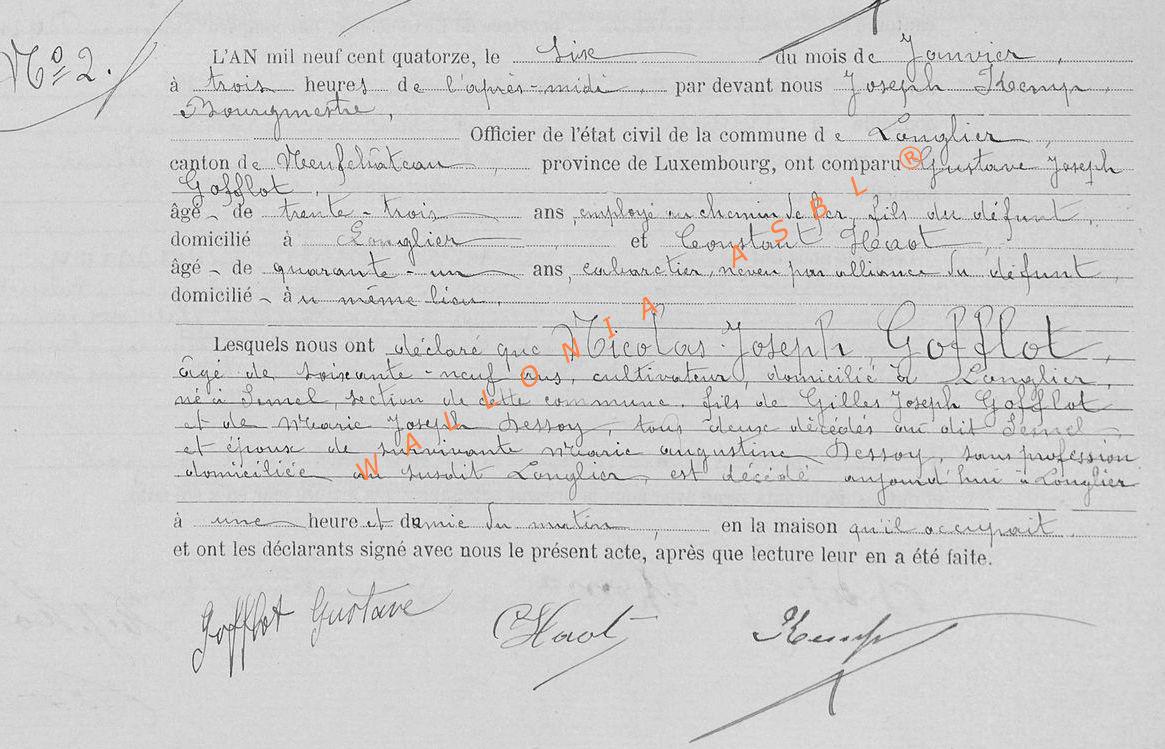 N° 2.
L'AN mil neuf cent quatorze, le six du mois de Janvier,
à trois heures de l'après-midi par devant nous Joseph Kemp,
Bourgmestre,
Officier de l'état civil de la commune de Longlier,
canton de Neufchâteau, province de Luxembourg, ont comparu Gustave Joseph
Gofflot,
âgé de trente-trois ans, employé au chemin de fer, fils du défunt,
domicilié à Longlier et Constant Haot,
âgé de quarante-un ans, cabaretier, neveu par alliance du défunt
domicilié au même lieu.
Lesquels nous ont déclaré que Nicolas Joseph Gofflot,
âgé de soixante-neuf ans, cultivateur, domicilié à Longlier,
né à Semel, section de cette commune, fils de Gilles Joseph Gofflot
et de Marie Joseph Dessoy, tous deux décédés au dit Semel
et époux de survivante Marie Augustine Dessoy, sans profession
domiciliée au susdit Longlier, est décédé aujourd'hui à Longlier
à une heure et demie du matin, en la maison qu'il occupait.
et ont les déclarants signé avec nous le présent acte, après que lecture leur en a été faite.
Gofflot Gustave CHaot Kemp
WALLONIA ASBL ®